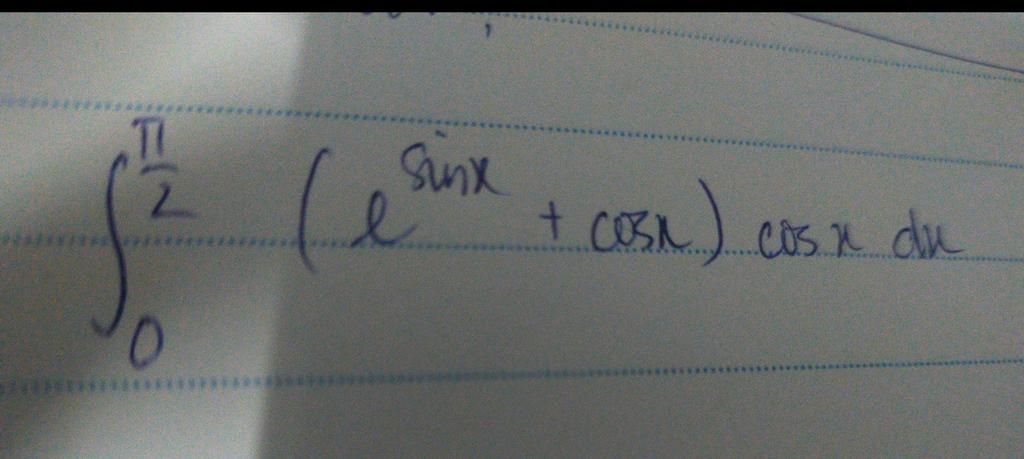 ∫₀^{π/2} (e^{sinx} + cosx) cosx dx